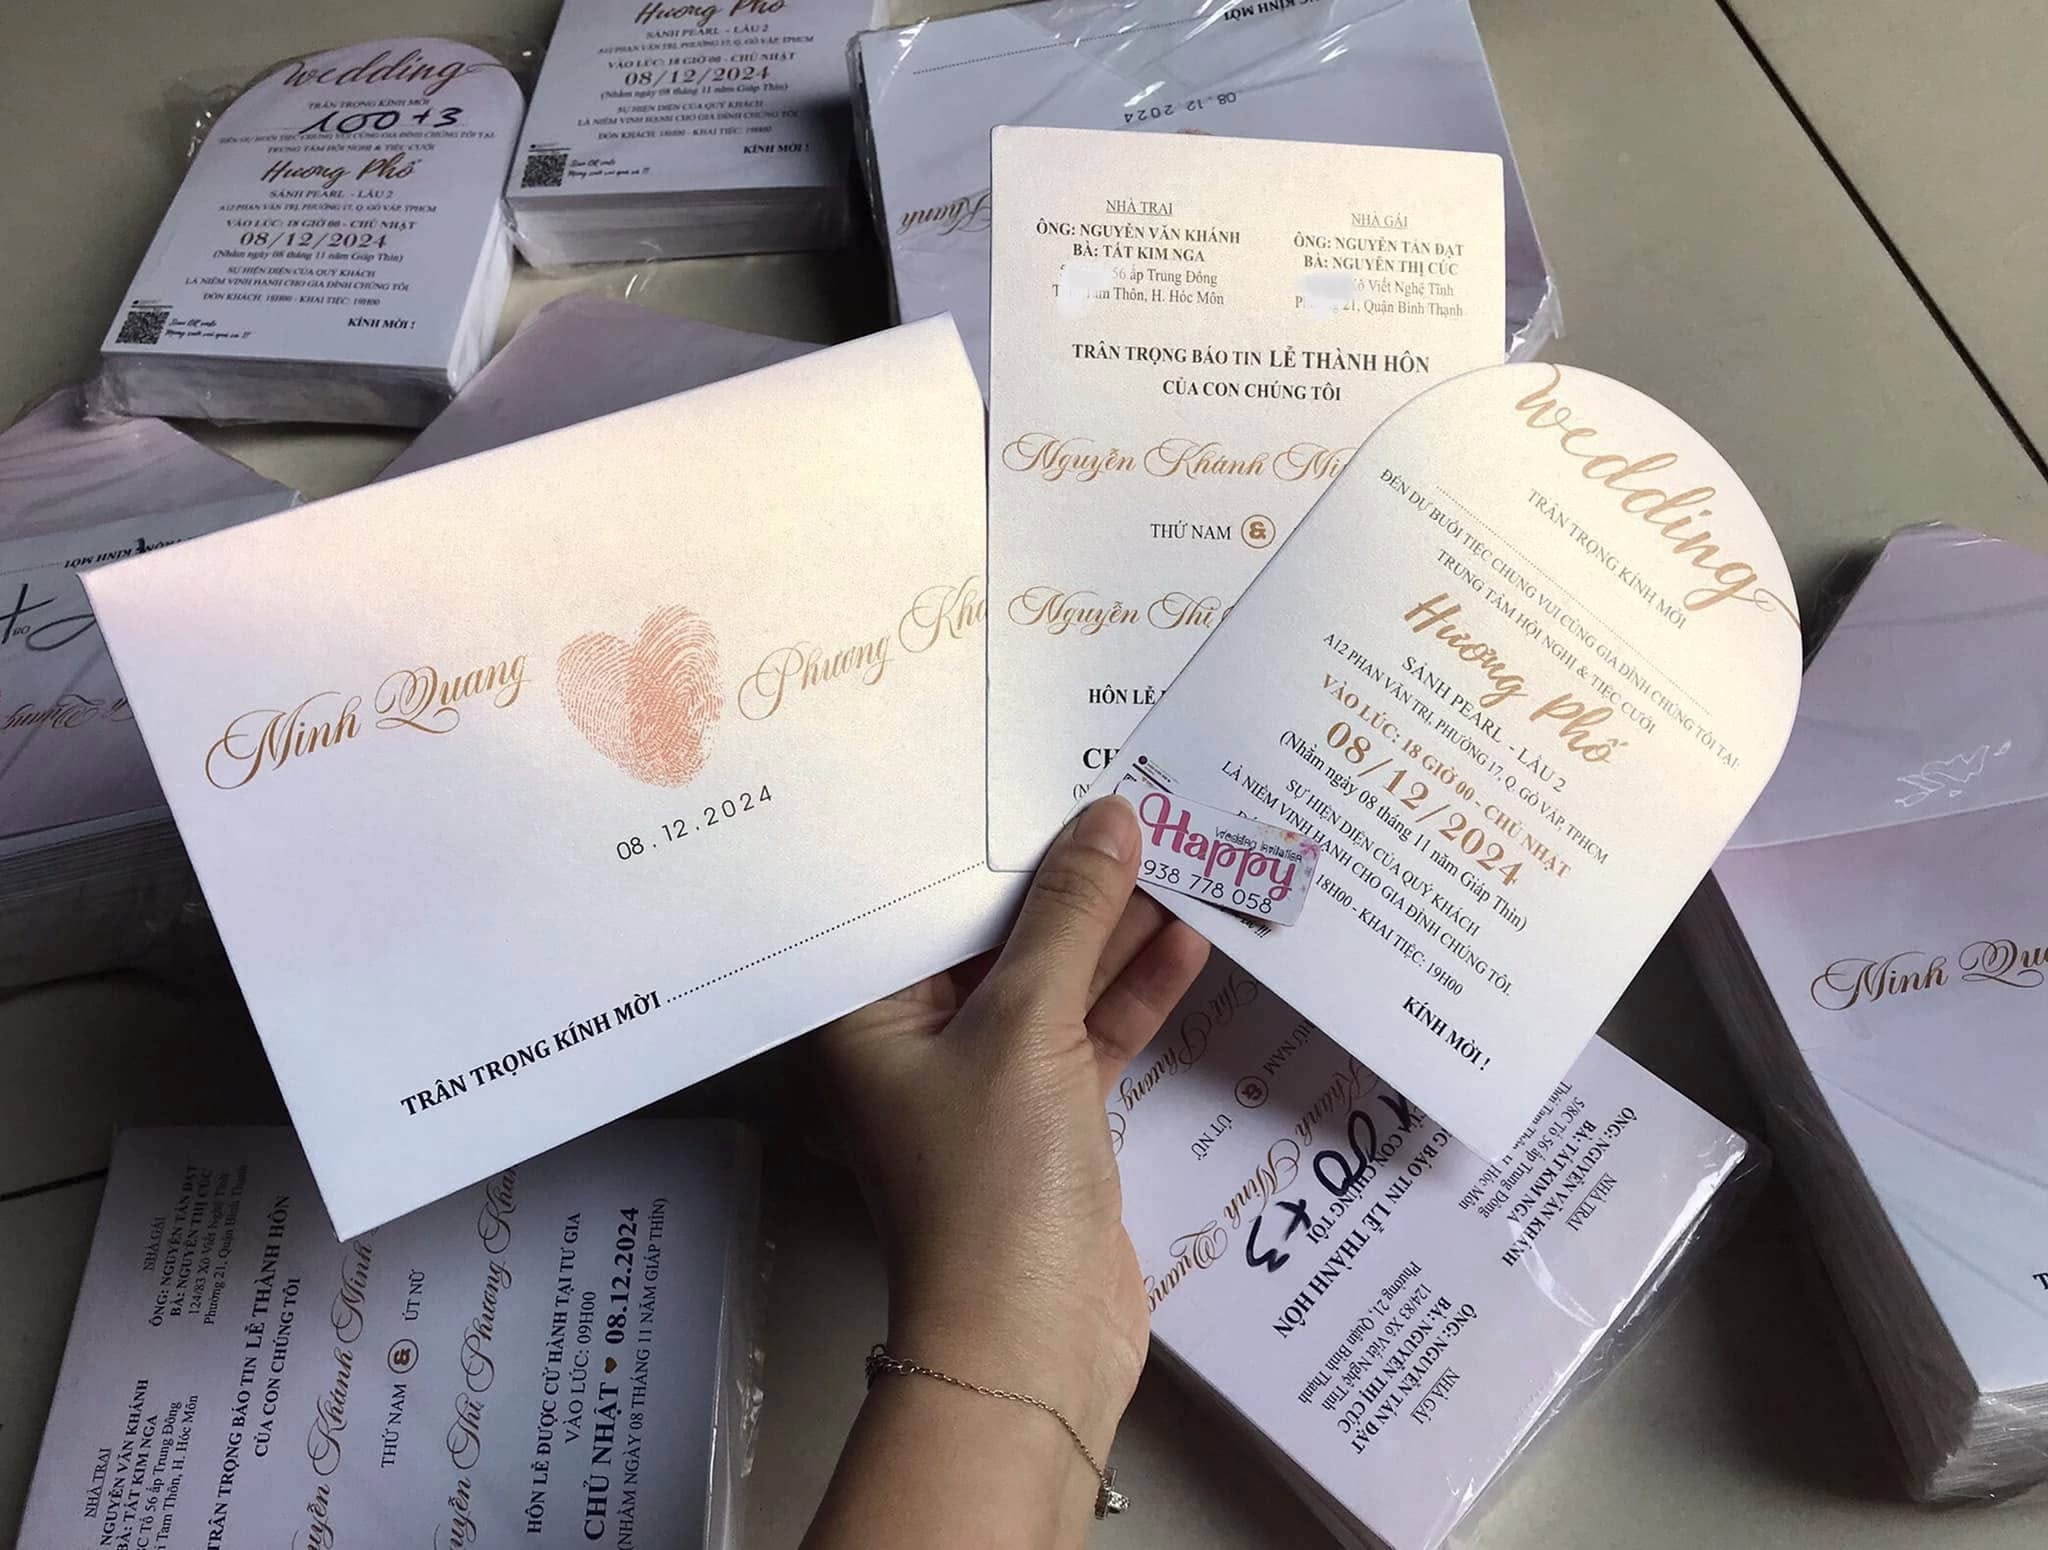 wedding
TRÂN TRỌNG KÍNH MỜI
100 +3
ĐẾN DỰ BUỔI TIỆC CHUNG VUI CÙNG GIA ĐÌNH CHÚNG TÔI TẠI:
TRUNG TÂM HỘI NGHỊ & TIỆC CƯỚI
Hương Phố
SẢNH PEARL - LẦU 2
A12 PHAN VĂN TRỊ, PHƯỜNG 17, Q. GÒ VẤP, TPHCM
VÀO LÚC: 18 GIỜ 00 - CHỦ NHẬT
08/12/2024
(Nhằm ngày 08 tháng 11 năm Giáp Thìn)
SỰ HIỆN DIỆN CỦA QUÝ KHÁCH
LÀ NIỀM VINH HẠNH CHO GIA ĐÌNH CHÚNG TÔI.
ĐÓN KHÁCH: 18H00 - KHAI TIỆC: 19H00
KÍNH MỜI !
Hương Phố
SẢNH PEARL - LẦU 2
A12 PHAN VĂN TRỊ, PHƯỜNG 17, Q. GÒ VẤP, TPHCM
VÀO LÚC: 18 GIỜ 00 - CHỦ NHẬT
08/12/2024
(Nhằm ngày 08 tháng 11 năm Giáp Thìn)
SỰ HIỆN DIỆN CỦA QUÝ KHÁCH
LÀ NIỀM VINH HẠNH CHO GIA ĐÌNH CHÚNG TÔI.
ĐÓN KHÁCH: 18H00 - KHAI TIỆC: 19H00
KÍNH MỜI !
KÍNH MỜI
08.12.2024
Khanh
NHÀ TRAI
ÔNG: NGUYỄN VĂN KHÁNH
BÀ: TẤT KIM NGA
56 ấp Trung Đông
Thôn, H. Hóc Môn
NHÀ GÁI
ÔNG: NGUYỄN TẤN ĐẠT
BÀ: NGUYỄN THỊ CÚC
Viết Nghệ Tĩnh
21, Quận Bình Thạnh
TRÂN TRỌNG BÁO TIN LỄ THÀNH HÔN
CỦA CON CHÚNG TÔI
Nguyễn Khánh
THỨ NAM &
Nguyễn Thị
HÔN LỄ
Minh Quang
Phương
08.12.2024
TRÂN TRỌNG KÍNH MỜI
wedding
TRÂN TRỌNG KÍNH MỜI
ĐẾN DỰ BUỔI TIỆC CHUNG VUI CÙNG GIA ĐÌNH CHÚNG TÔI TẠI:
TRUNG TÂM HỘI NGHỊ & TIỆC CƯỚI
Hương Phố
SẢNH PEARL - LẦU 2
A12 PHAN VĂN TRỊ, PHƯỜNG 17, Q. GÒ VẤP, TPHCM
VÀO LÚC: 18 GIỜ 00 - CHỦ NHẬT
08/12/2024
(Nhằm ngày 08 tháng 11 năm Giáp Thìn)
SỰ HIỆN DIỆN CỦA QUÝ KHÁCH
LÀ NIỀM VINH HẠNH CHO GIA ĐÌNH CHÚNG TÔI.
18H00 - KHAI TIỆC: 19H00
KÍNH MỜI !
Happy
Wedding invitation
938 778 058
Minh
NHÀ GÁI
ÔNG: NGUYỄN TẤN ĐẠT
BÀ: NGUYỄN THỊ CÚC
124/83 Xô Viết Nghệ Tĩnh
Phường 21, Quận Bình Thạnh
NHÀ TRAI
NGUYỄN VĂN KHÁNH
TẤT KIM NGA
Tổ 56 ấp Trung Đông
Tam Thôn, H. Hóc Môn
TRÂN TRỌNG BÁO TIN LỄ THÀNH HÔN
CỦA CON CHÚNG TÔI
Khánh Minh
THỨ NAM & ÚT NỮ
Thị Phương
HÔN LỄ ĐƯỢC CỬ HÀNH TẠI TƯ GIA
VÀO LÚC: 09H00
CHỦ NHẬT 08.12.2024
(NHẰM NGÀY 08 THÁNG 11 NĂM GIÁP THÌN)
NHÀ TRAI
ÔNG: NGUYỄN VĂN KHÁNH
BÀ: TẤT KIM NGA
5/8C Tổ 56 ấp Trung Đông
NHÀ GÁI
ÔNG: NGUYỄN TẤN ĐẠT
BÀ: NGUYỄN THỊ CÚC
124/83 Xô Viết Nghệ Tĩnh
Phường 21, Quận Bình Thạnh
BÁO TIN LỄ THÀNH HÔN
CON CHÚNG TÔI
Khánh Minh Quang
THỨ NAM & ÚT NỮ
Thị Phương